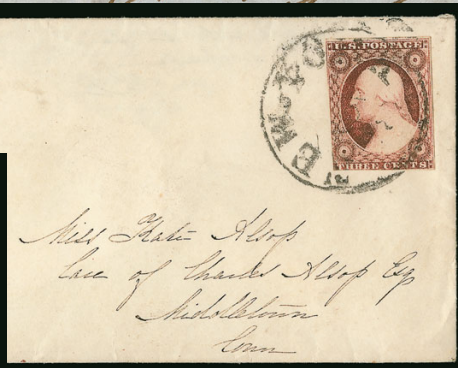 U.S. POSTAGE
THREE CENTS
NEW-YO
Miss Katie Alsop
Care of Charles Alsop Esq
Middletown
Conn